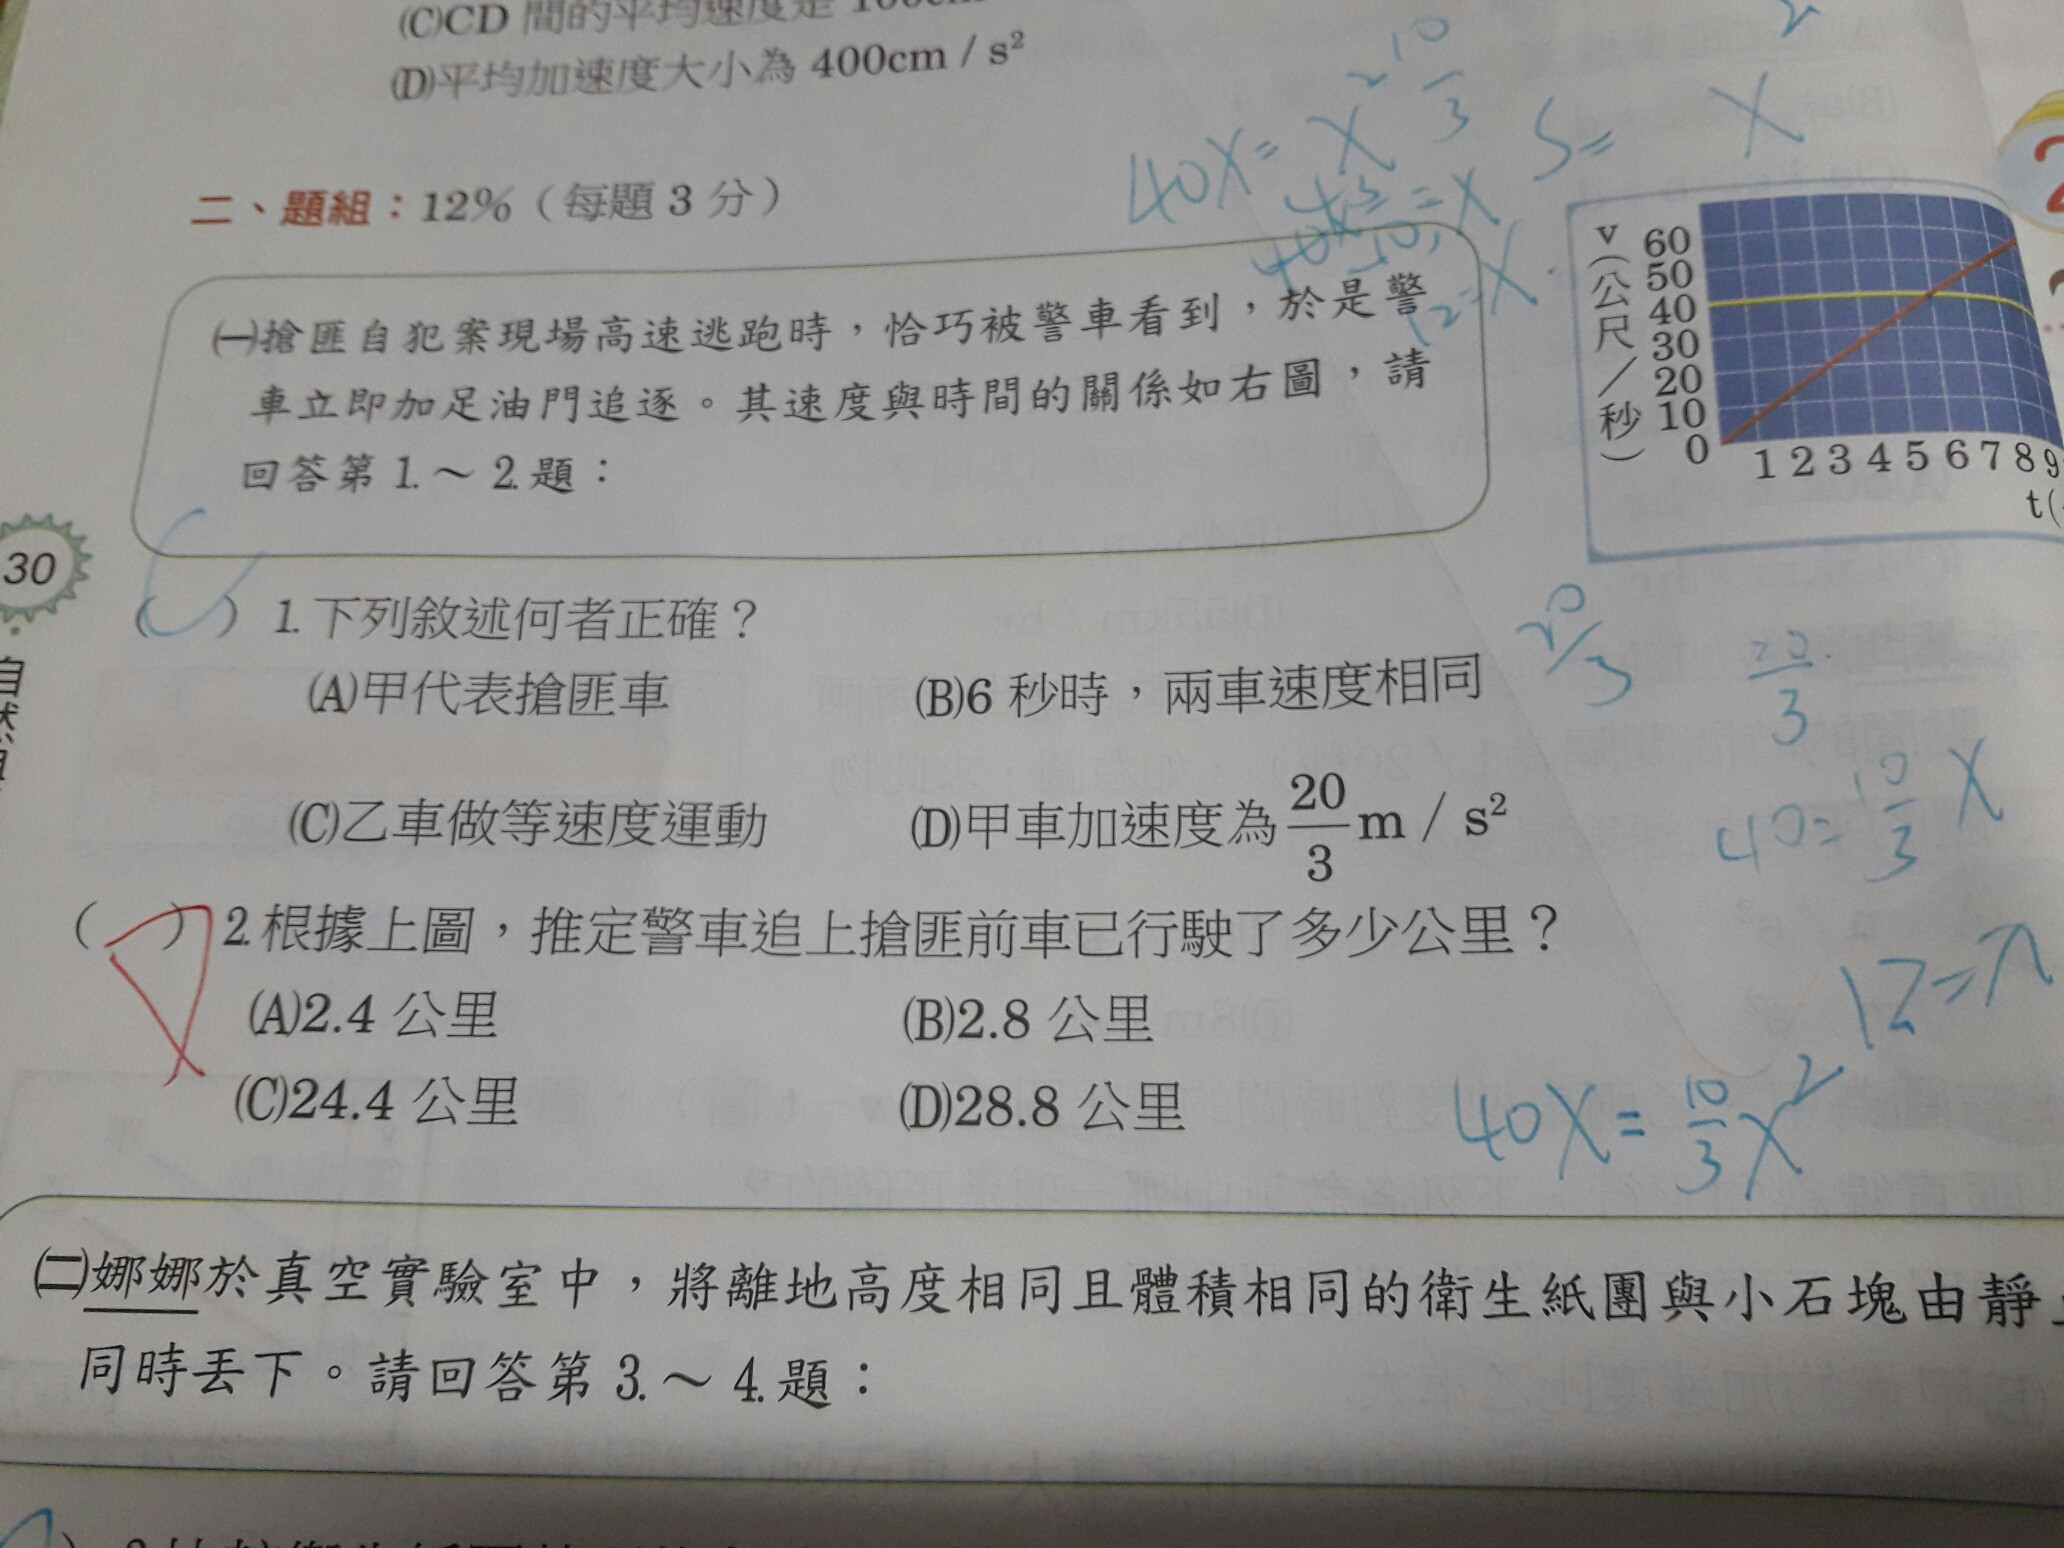 (C)CD 間的平均速度是 100cm
(D)平均加速度大小為 400cm / s²
二、題組：12%（每題 3 分）
㈠搶匪自犯案現場高速逃跑時，恰巧被警車看到，於是警
車立即加足油門追逐。其速度與時間的關係如右圖，請
回答第 1.～ 2.題：
v（公尺／秒）
60
50
40
30
20
10
0
1 2 3 4 5 6 7 8 9
t(
30
自然
( ) 1.下列敘述何者正確？
(A)甲代表搶匪車
(B)6 秒時，兩車速度相同
(C)乙車做等速度運動
(D)甲車加速度為 20/3 m / s²
( ) 2.根據上圖，推定警車追上搶匪前車已行駛了多少公里？
(A)2.4 公里
(B)2.8 公里
(C)24.4 公里
(D)28.8 公里
40X= X² 10/3
S= X
12=X
20/3
20/3
40= 10/3 X
12=X
40X= 10/3 X²
㈡娜娜於真空實驗室中，將離地高度相同且體積相同的衛生紙團與小石塊由靜
同時丟下。請回答第 3.～ 4.題：